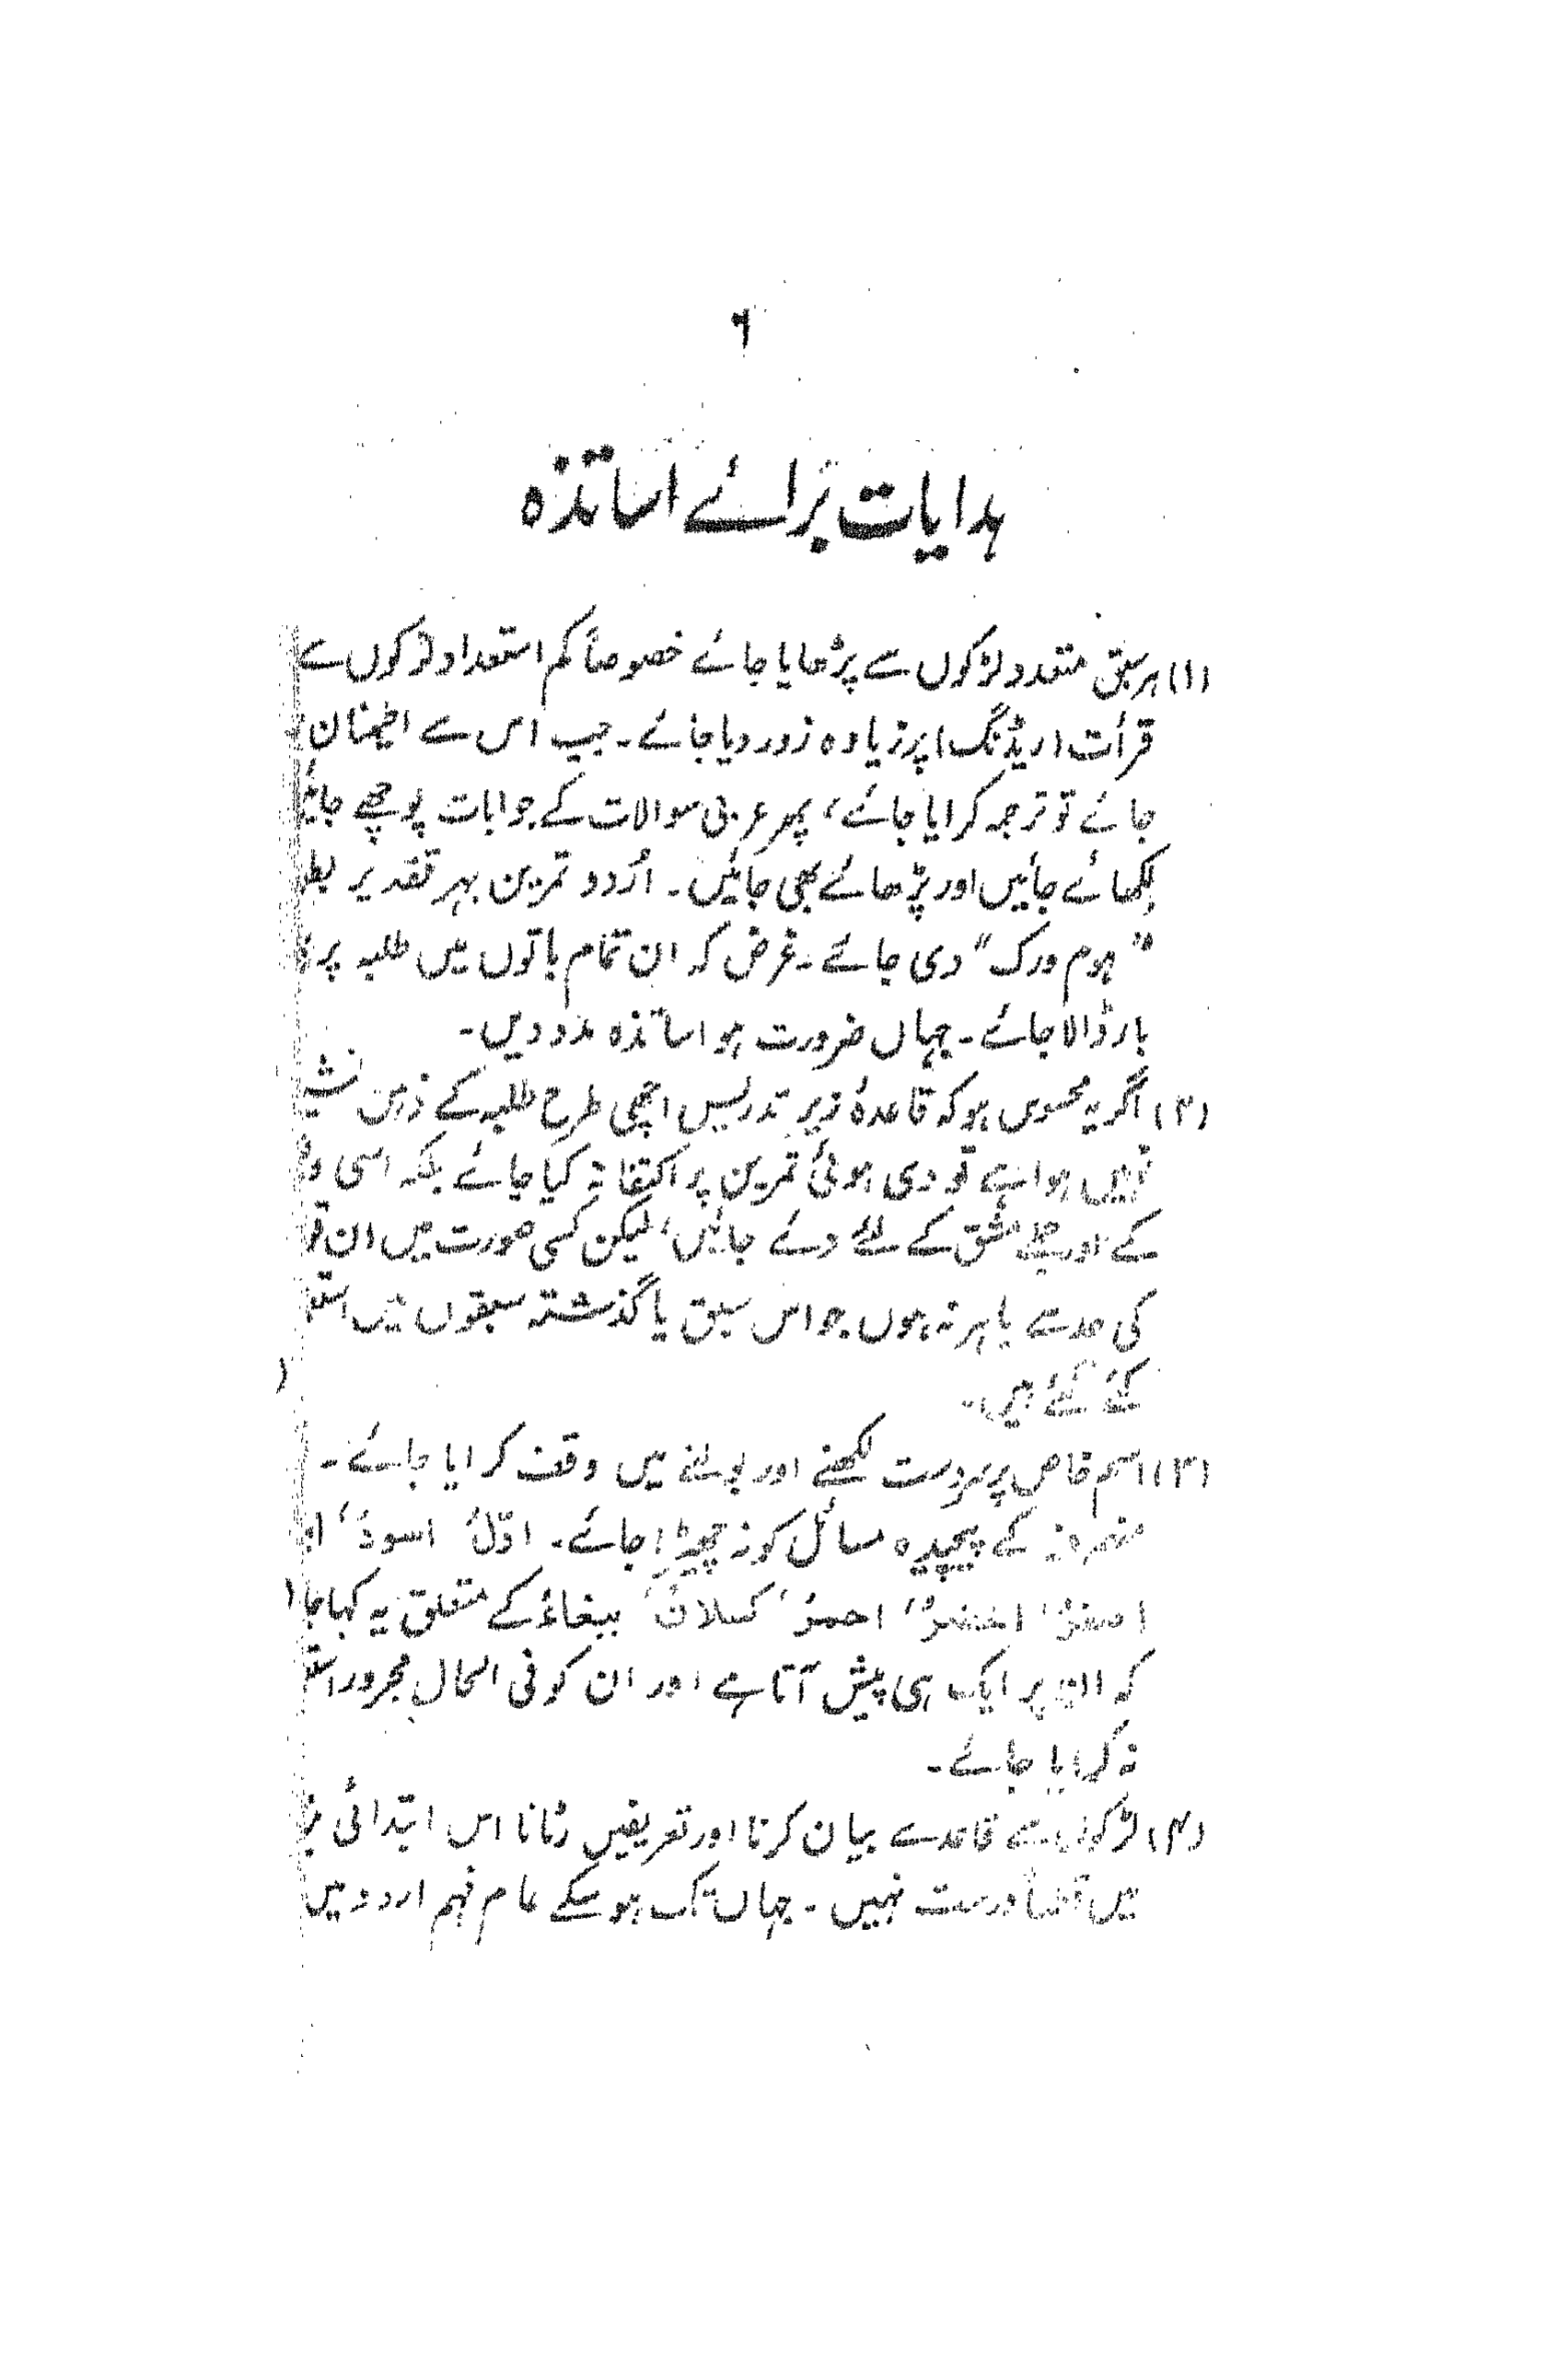 ۶
ہدایات برائے اساتذہ
(۱) ہر سبق متعدد لڑکوں سے پڑھایا جائے خصوصاً کم استعداد لڑکوں سے
قرأت (ریڈنگ) پر زیادہ زور دیا جائے۔ جب اس سے اطمینان
جائے تو ترجمہ کرایا جائے، پھر عربی سوالات کے جوابات پوچھے
لکھائے جائیں اور پڑھائے بھی جائیں۔ اُردو تمرین بہر تقدیر
”ہوم ورک“ دی جائے۔ غرض کہ ان تمام باتوں میں طلبہ پر
بار ڈالا جائے۔ جہاں ضرورت ہو اساتذہ مدد دیں۔
(۲) اگر یہ محسوس ہو کہ قاعدۂ زیر تدریس اچھی طرح طلبہ کے ذہن
نہیں ہوا ہے تو دی ہوئی تمرین پر اکتفا نہ کیا جائے بلکہ اسی
کے اور جملے مشق کے لئے دئے جائیں، لیکن کسی صورت میں ان
کی حد سے باہر نہ ہوں جو اس سبق یا گذشتہ سبقوں میں
کئے گئے ہیں۔
(۳) اسم خاص پر سردست لکھنے اور بولنے میں وقف کرایا جائے۔
کے پیچیدہ مسائل کو نہ چھیڑا جائے۔ اوّلُ اسودُ،
اصفرُ، اخضرُ، احمرُ، کسلانُ، ببغاءُ کے متعلق یہ کہا
کہ ان پر ایک ہی پیش آتا ہے اور ان کو فی الحال مجرور
نہ کرایا جائے۔
(۴) لڑکوں سے قاعدے بیان کرنا اور تعریفیں رٹانا اس ابتدائی
میں قطعاً درست نہیں۔ جہاں تک ہو سکے عام فہم اردو میں